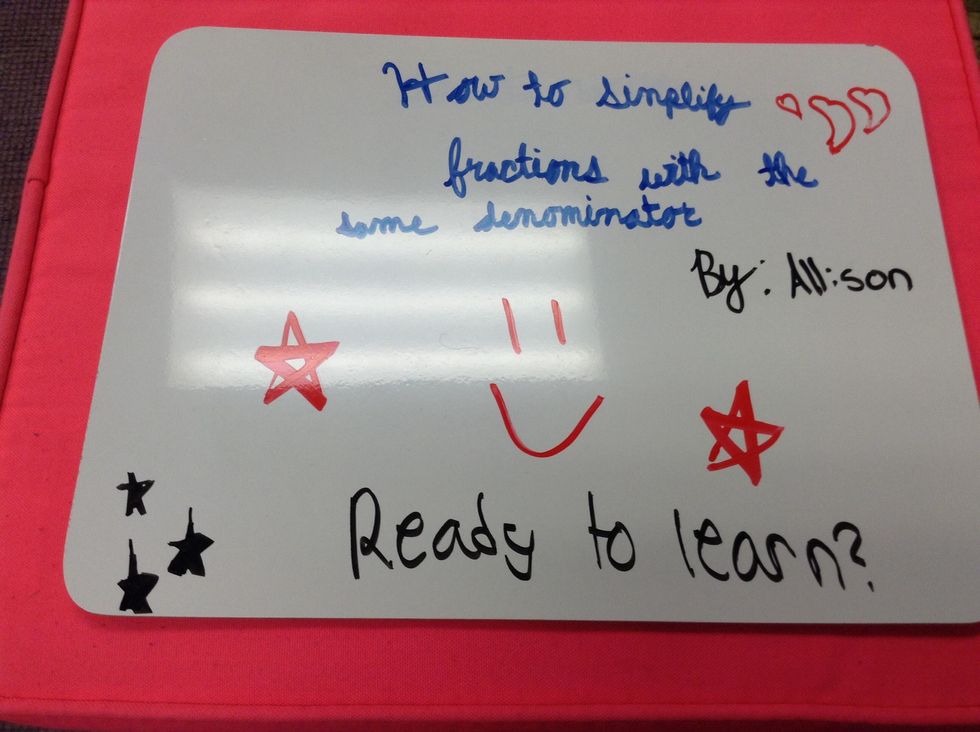 How to simplify
fractions with the
same denominator
By: Allison
Ready to learn?